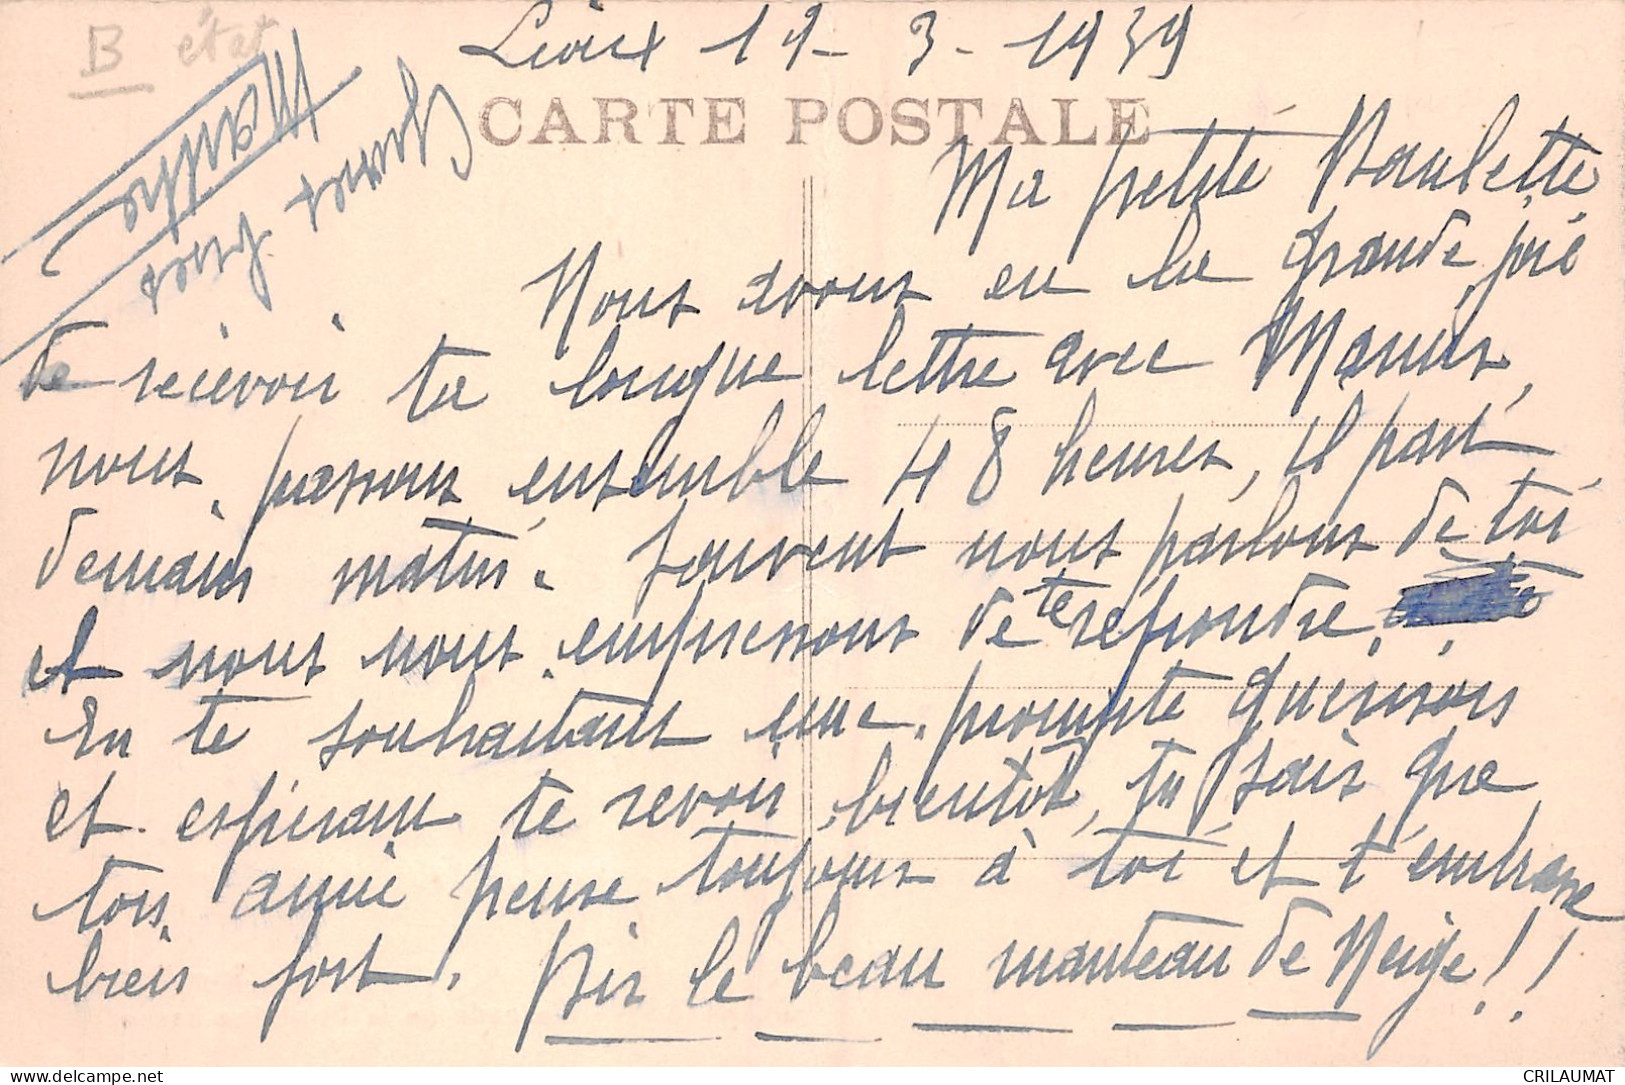 B état
19-3-1939
CARTE POSTALE
Ma petite Paulette
Nous avons eu la grande joie
de recevoir ta longue lettre avec
nous passons ensemble 48 heures, il part
demain matin. Souvent nous parlons de toi
et nous nous empressons de te répondre.
En te souhaitant une prompte guérison
et espérant te revoir bientôt, tu sais que
ton amie pense toujours à toi et t'embrasse
bien fort. le beau manteau de Neige!!
Gros
Marthe
CRILAUMAT